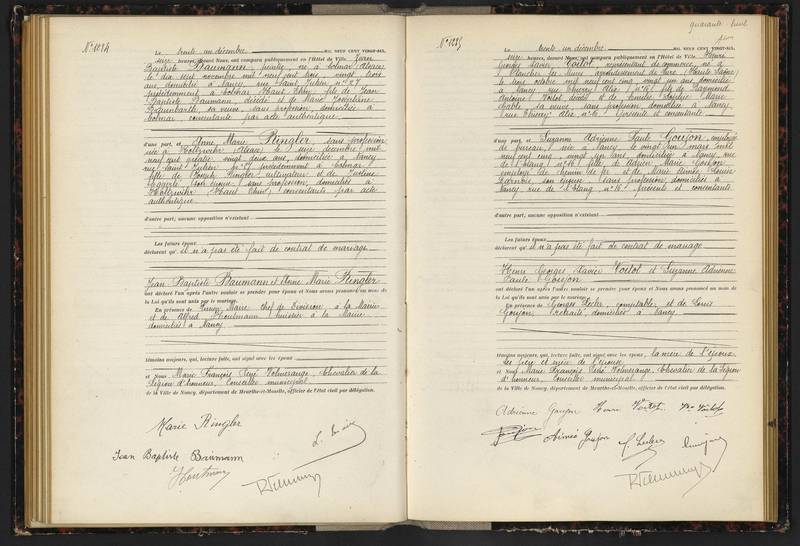 N° 1224
Le trente un décembre MIL NEUF CENT VINGT-SIX,
heures, devant Nous, ont comparu publiquement en l'Hôtel de Ville Jean
Baptiste Baumann, peintre, né à Colmar
le dix sept novembre mil neuf cent trois, vingt trois
ans domicilié à Nancy, rue Saint Julien n° 27
précédemment à Colmar (Haut Rhin) fils de Jean
Baptiste Baumann, décédé et de Marie Joséphine
sa veuve, sans profession, domiciliée à
Colmar consentante par acte authentique
d'une part, et Anne Marie Ringler, sans profession
née à Holtzwihr (Alsace) le seize décembre mil
neuf cent quatre vingt deux ans, domiciliée à Nancy
rue Saint Julien n° 27 précédemment à Colmar
fille de Joseph Ringler cultivateur et de
son épouse sans profession, domiciliés à
Holtzwihr (Haut Rhin) consentants par acte
authentique
d'autre part, aucune opposition n'existant
Les futurs époux
déclarent qu'il n'a pas été fait de contrat de mariage
Jean Baptiste Baumann et Anne Marie Ringler
ont déclaré l'un après l'autre vouloir se prendre pour époux et Nous avons prononcé au nom de
la Loi qu'ils sont unis par le mariage.
En présence de Marie chef de Division à la Mairie
et de Alfred Houtmann, huissier à la Mairie
domiciliés à Nancy
témoins majeurs, qui, lecture faite, ont signé avec les époux
et Nous Marie François René Volmerange, Chevalier de la
Légion d'honneur, Conseiller municipal
de la Ville de Nancy, département de Meurthe-et-Moselle, officier de l'état civil par délégation.
Marie Ringler
Jean Baptiste Baumann
quarante huit
N° 1225
Le trente un décembre MIL NEUF CENT VINGT-SIX,
heures, devant Nous, ont comparu publiquement en l'Hôtel de Ville Henri
Georges Xavier Voitot, représentant de commerce, né à
Plancher les Mines arrondissement de Lure (Haute Saône)
le trois octobre mil neuf cent cinq, vingt un ans, domicilié
à Nancy rue n° 6 fils de Raymond
Antoine Voitot décédé et de Marie
sa veuve, sans profession, domiciliée à Nancy
rue n° 6 présente et consentante
d'une part, et Suzanne Adrienne Paule Goujon, employée
de bureau, née à Nancy, le vingt un mars mil
neuf cent cinq vingt un ans, domiciliée à Nancy, rue
de l'étang n° 16 fille de Marie Goujon
employé de chemin de fer et de Marie Aimée
son épouse sans profession, domiciliés à
Nancy rue de l'étang n° 16 présents et consentants
d'autre part, aucune opposition n'existant
Les futurs époux
déclarent qu'il n'a pas été fait de contrat de mariage
Henri Georges Xavier Voitot et Suzanne Adrienne
Paule Goujon
ont déclaré l'un après l'autre vouloir se prendre pour époux et Nous avons prononcé au nom de
la Loi qu'ils sont unis par le mariage.
En présence de Georges comptable, et de Louis
Goujon, retraité, domiciliés à Nancy
témoins majeurs, qui, lecture faite, ont signé avec les époux, la mère de l'époux
les père et mère de l'épouse
et Nous Marie François René Volmerange, Chevalier de la Légion
d'honneur, Conseiller municipal
de la Ville de Nancy, département de Meurthe-et-Moselle, officier de l'état civil par délégation.
Adrienne Goujon Henri Voitot Vve Voitot
Goujon Aimée Goujon